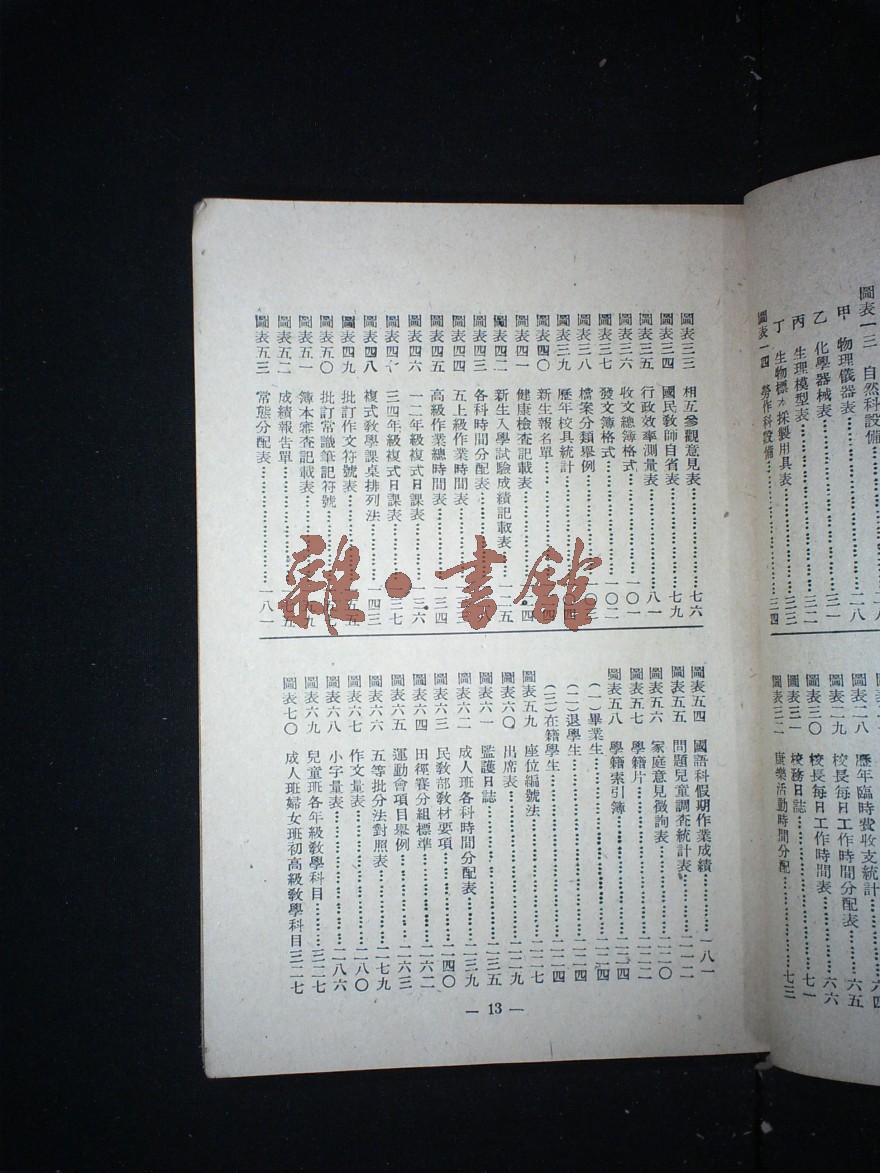 圖表一三 自然科設備……二八
甲 物理儀器表……二八
乙 化學器械表……三一
丙 生理模型表……三三
丁 生物標本採製用具表……三三
圖表一四 勞作科設備……三四
歷年臨時費收支統計……六四
圖表二八 校長每日工作時間分配表……六五
圖表二九 校長每日工作時間表……六六
圖表三〇 校務日誌……七一
圖表三一
圖表三二 康樂活動時間分配……七三
圖表三三 相互參觀意見表……七六
圖表三四 國民教師自省表……七九
圖表三五 行政效率測量表……八一
圖表三六 收文總簿格式……一〇一
圖表三七 發文簿格式……一〇二
圖表三八 檔案分類舉例
圖表三九 歷年校具統計
圖表四〇 新生報名單
圖表四一 健康檢查記載表
圖表四二 新生入學試驗成績記載表
圖表四三 各科時間分配表
圖表四四 五上級作業時間表
圖表四五 高級作業總時間表……一三四
圖表四六 一二年級複式日課表……一三六
圖表四七 三四年級複式日課表……一三七
圖表四八 複式教學課桌排列法……一四三
圖表四九 批訂作文符號表
圖表五〇 批訂常識筆記符號
圖表五一 簿本審查記載表
圖表五二 成績報告單
圖表五三 常態分配表……一八一
圖表五四 國語科假期作業成績……一八一
圖表五五 問題兒童調查統計表……二一二
圖表五六 家庭意見徵詢表……二二〇
圖表五七 學籍片……二二二
圖表五八 學籍索引簿……二二四
(一)畢業生……二二四
(二)退學生……二二四
(三)在籍學生……二二四
圖表五九 座位編號法……二二七
圖表六〇 出席表……二二九
圖表六一 監護日誌……二三五
圖表六二 成人班各科時間分配表……二三九
圖表六三 民教部教材要項……二四〇
圖表六四 田徑賽分組標準……二六二
圖表六五 運動會項目舉例……二六三
圖表六六 五等批分法對照表……二七九
圖表六七 作文量表……二八〇
圖表六八 小字量表……二八六
圖表六九 兒童班各年級教學科目……三二七
圖表七〇 成人班婦女班初高級教學科目三二七
— 13 —
雜·書館